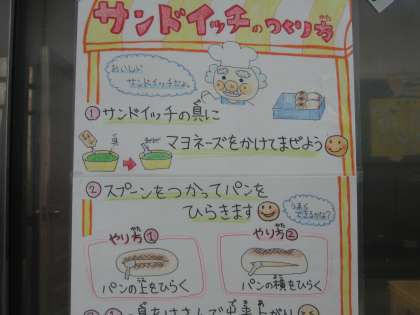 サンドイッチのつくり方
おいしい
サンドイッチだよ。
①サンドイッチの具に
マヨネーズをかけてまぜよう
具
②スプーンをつかってパンを
ひらきます
うまく
できるかな?
やり方①
やり方②
パンの上をひらく
パンの横をひらく
具をはさんで